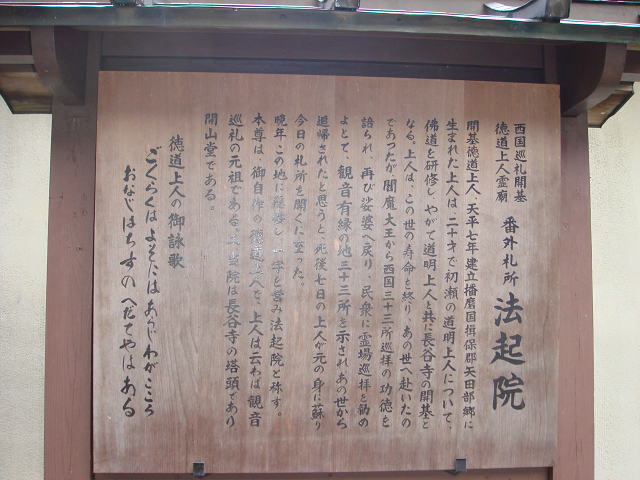 西国巡礼開基
徳道上人霊廟
番外札所 法起院
開基徳道上人、天平七年建立播磨国揖保郡矢田部郷に
生まれた上人は、二十才で初瀬の道明上人について、
佛道を研修し、やがて道明上人と共に長谷寺の開基と
なる。上人は、この世の寿命を終り、あの世へ赴いたの
であったが閻魔大王から西国三十三所巡拝の功徳を
諮られ、再び娑婆へ戻り、民衆に霊場巡拝を勧め
よとて、観音有縁の地三十三所を示されあの世から
追帰されたと思うと、死後七日の上人が元の身に蘇り
今日の札所を開くに至った。
晩年この地に隠棲し一宇を営み法起院と称す。
本尊は、御自作の徳道上人で、上人は云わば観音
巡礼の元祖である。当院は長谷寺の塔頭であり
開山堂である。
徳道上人の御詠歌
ごくらくはよそにはあらじわがこころ
おなじはちすのへだてやはある